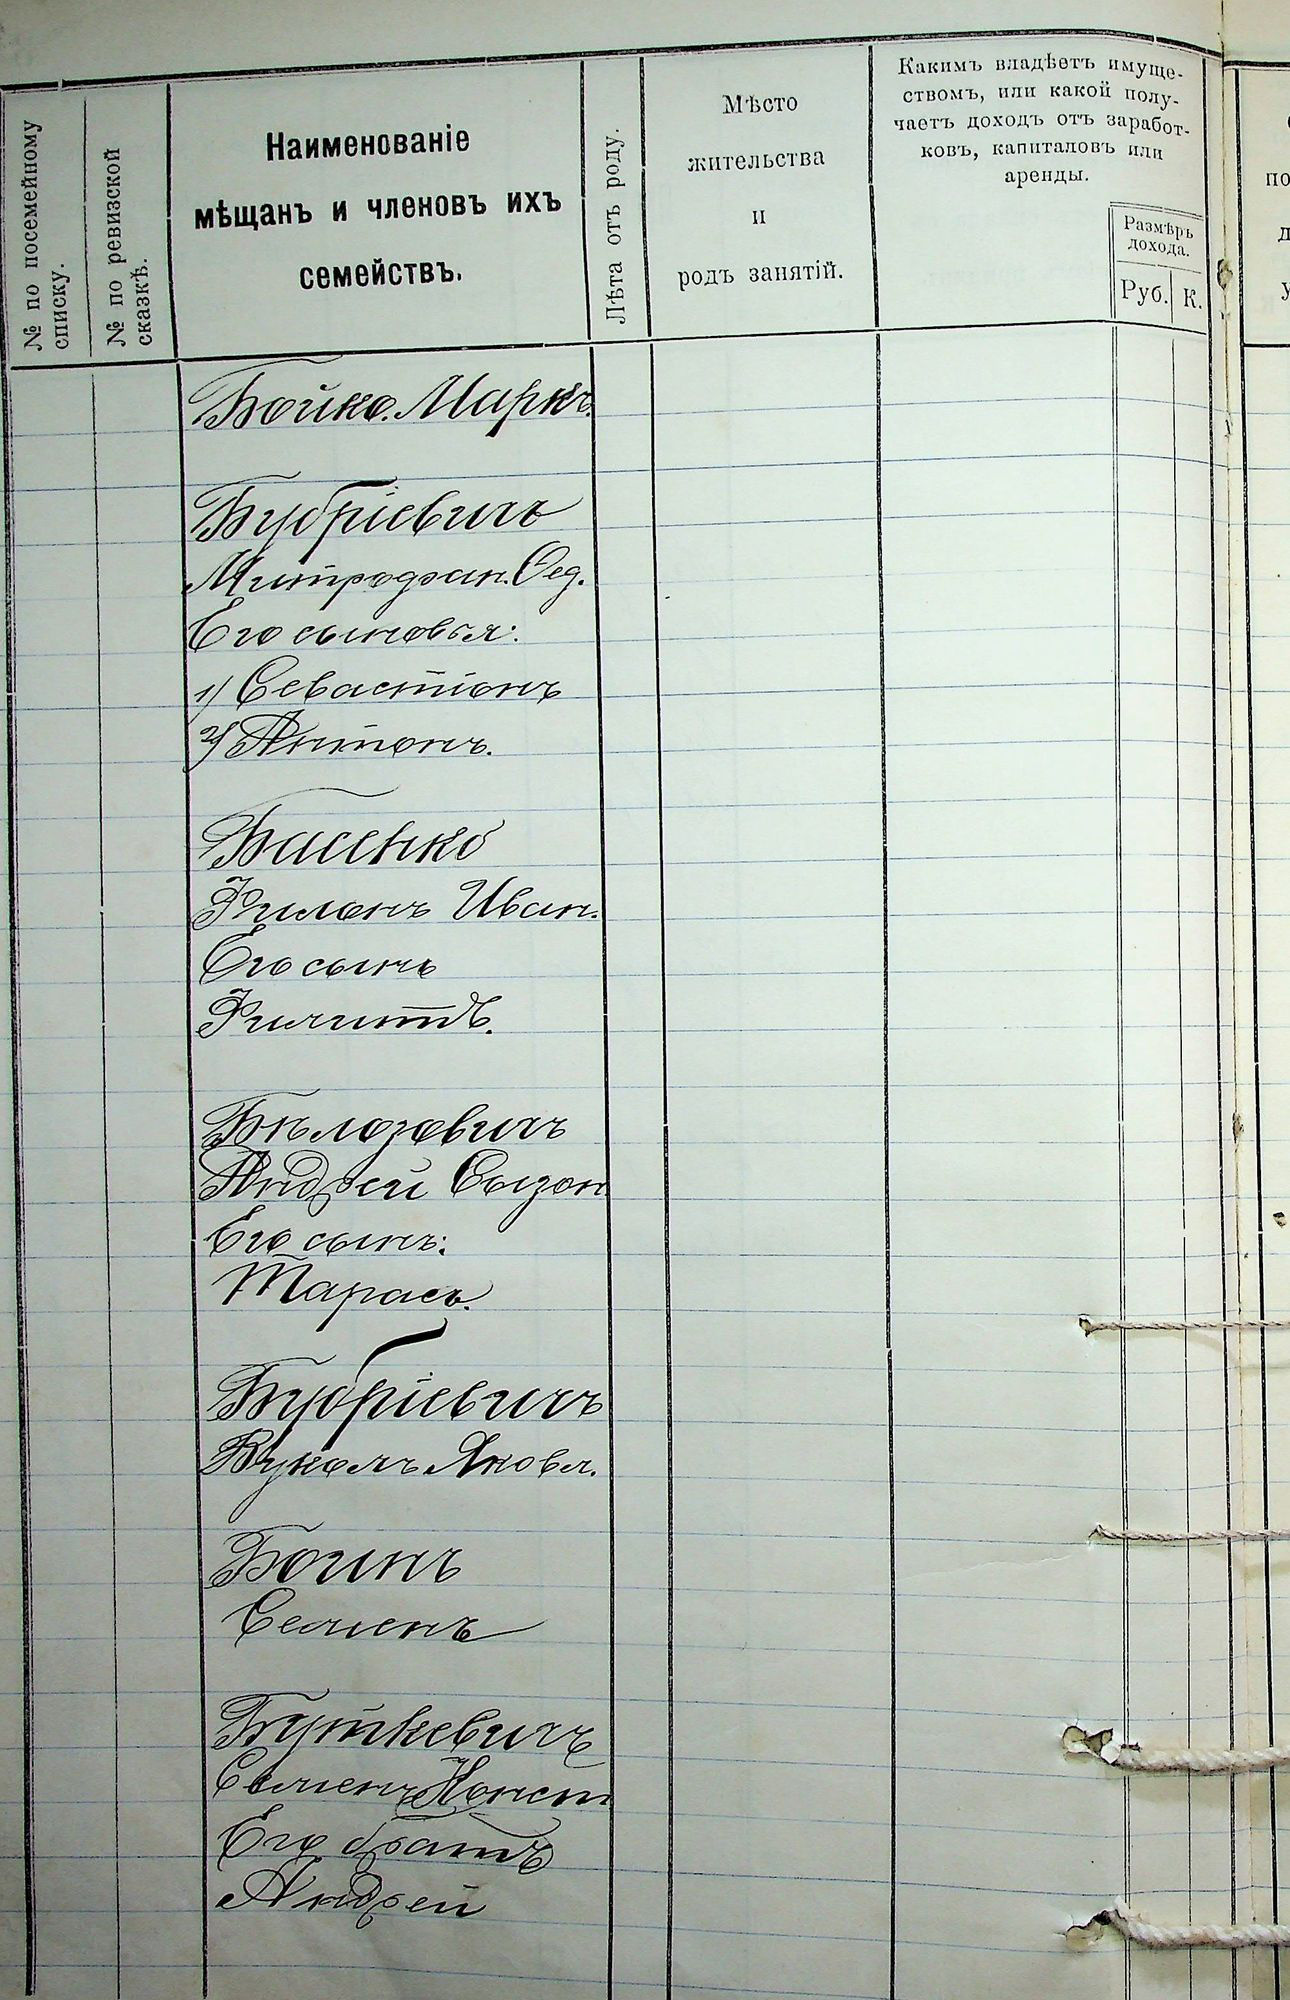 № по посемейному
списку.
№ по ревизской
сказкѣ.
Наименованіе
мѣщанъ и членовъ ихъ
семействъ.
Лѣта отъ роду.
Мѣсто
жительства
и
родъ занятій.
Какимъ владѣетъ имуще-
ствомъ, или какой полу-
чаетъ доходъ отъ заработ-
ковъ, капиталовъ или
аренды.
Размѣръ
дохода.
Руб. К.
Бойко. Маркъ.
Бубріевичъ
Митрофан. Ѳед.
Его сыновья:
1/ Севастіонъ
2/ Антонъ.
Басенко
Филонъ Иван.
Его сынъ
Филиппъ.
Бѣлозовичъ
Андрей Сызон
Его сынъ:
Тарасъ.
Бубріевичъ
Вуколъ Яковл.
Боинъ
Семенъ
Буткевичъ
Семенъ Конст
Его братъ
Андрей